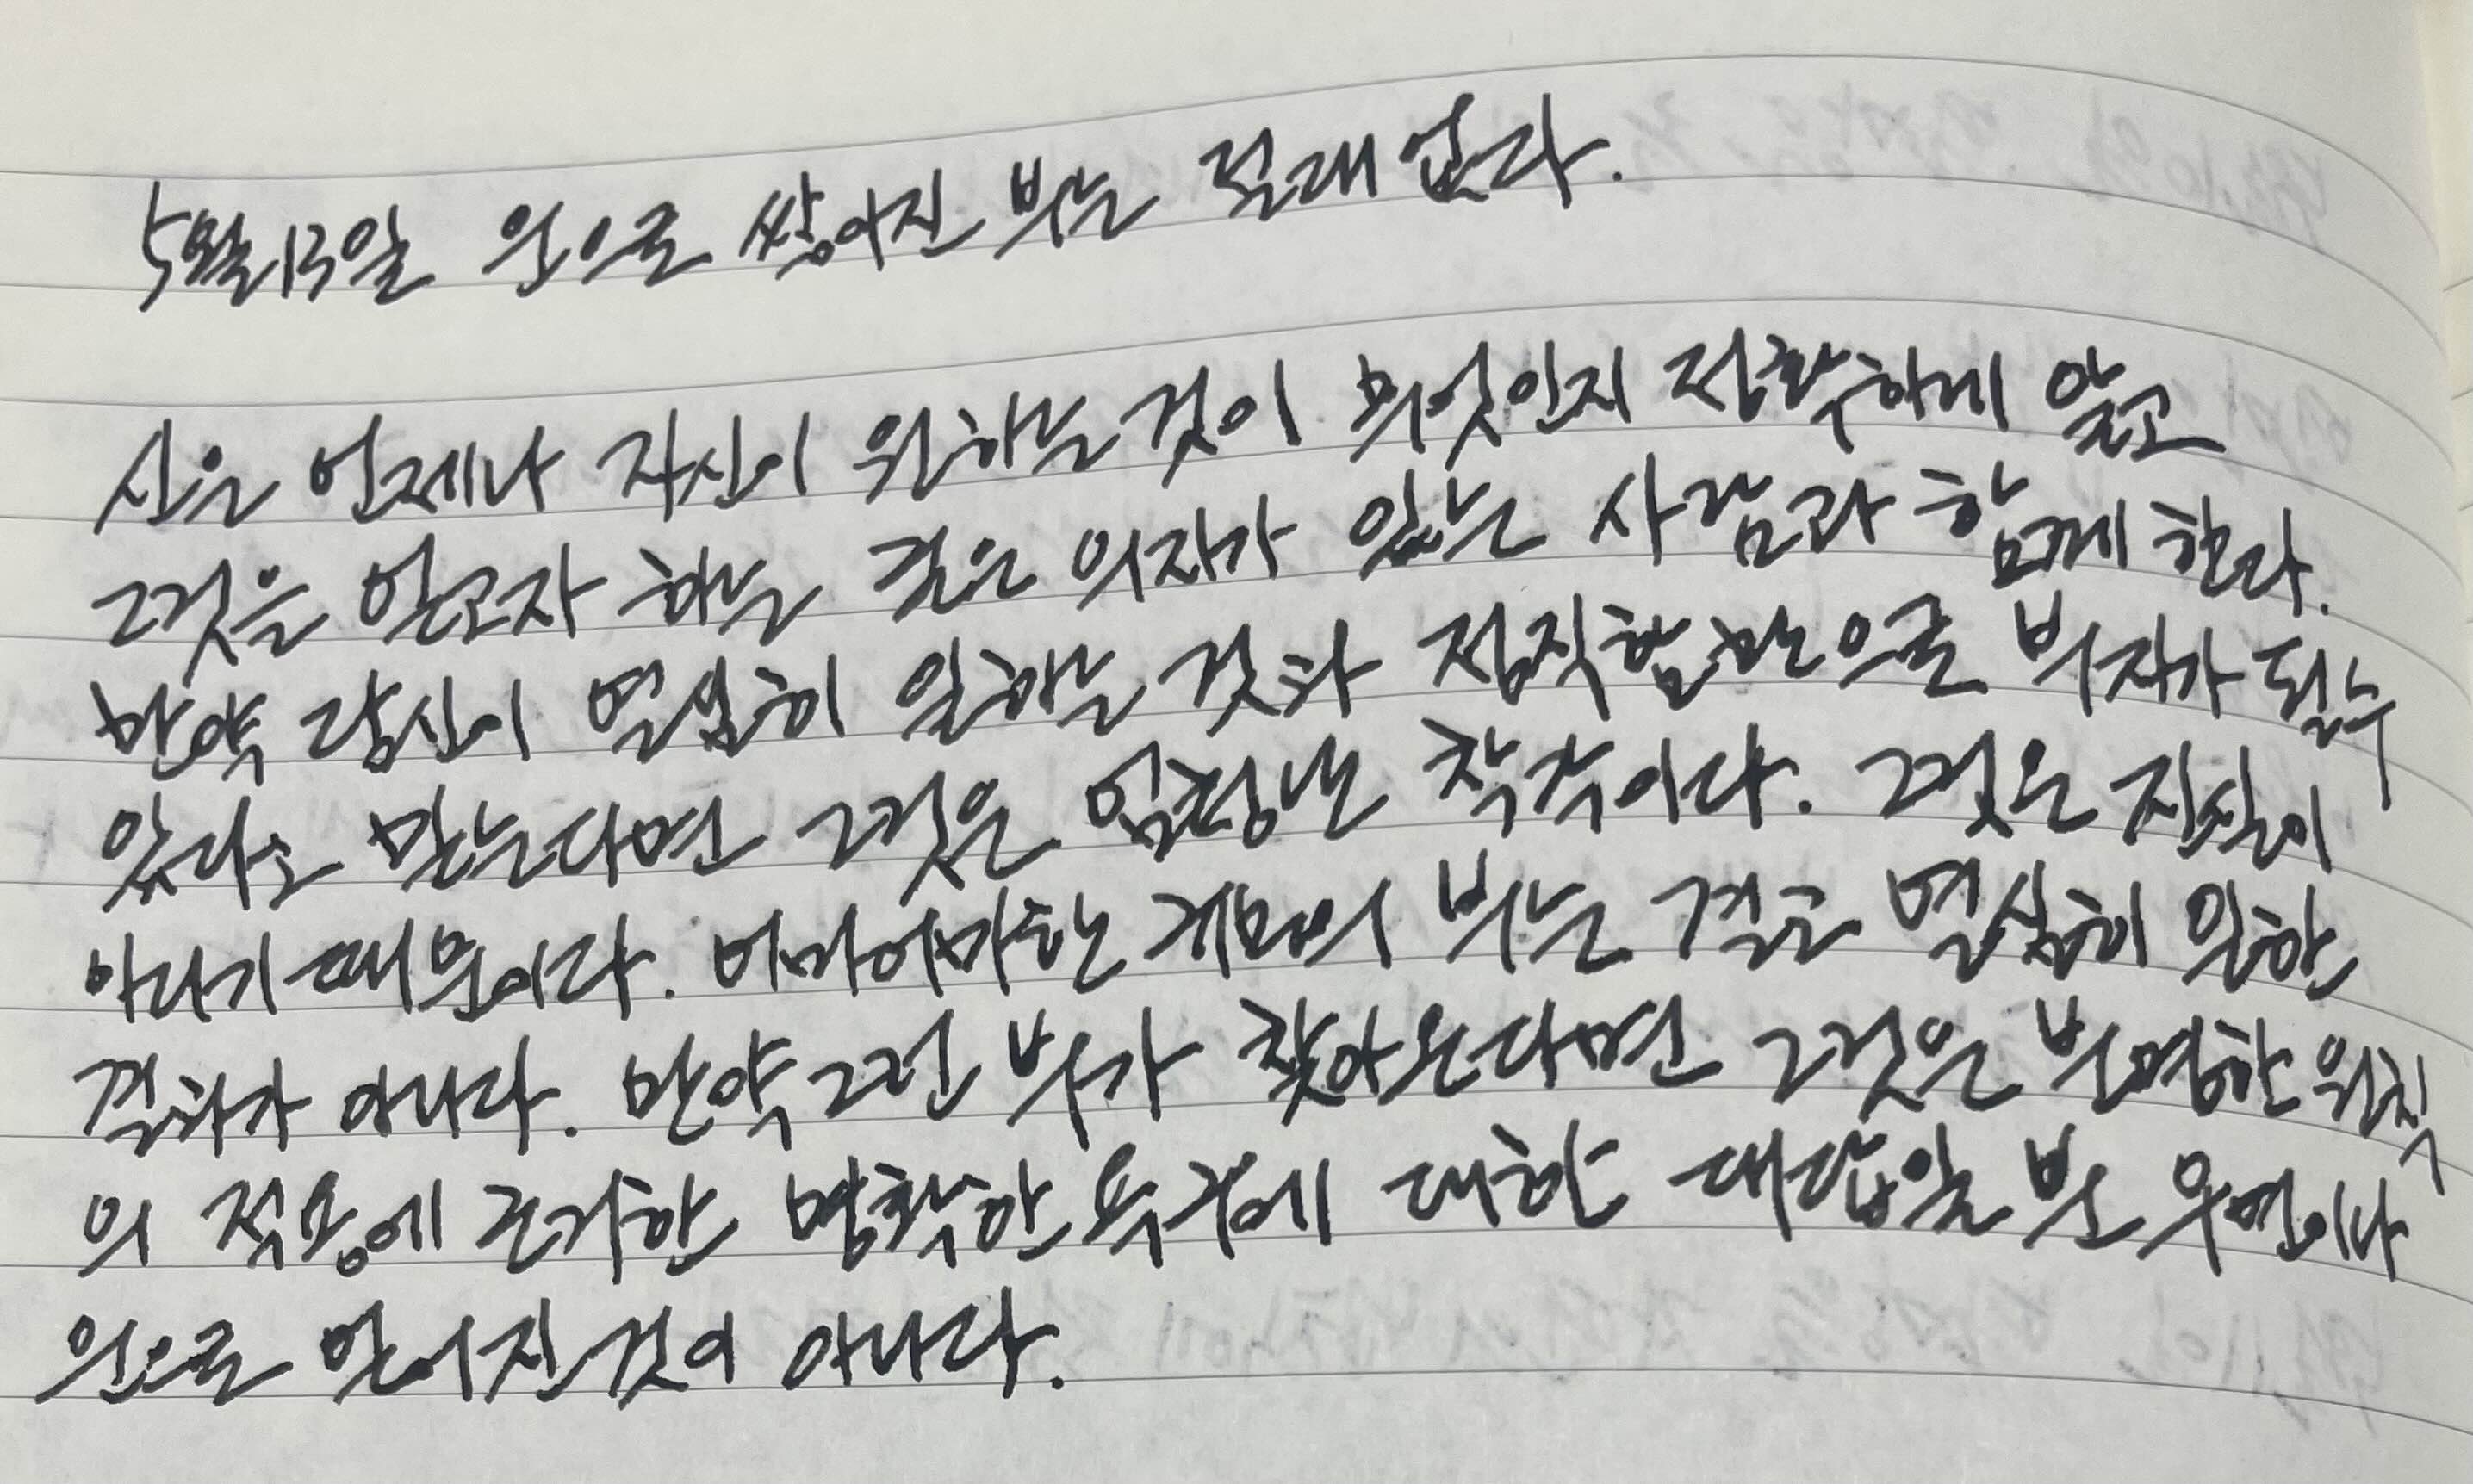 5월13일 운으로 쌓아진 부는 절대 없다.
신은 언제나 자신이 원하는 것이 무엇인지 정확하게 알고
그것을 얻고자 하는 굳은 의지가 있는 사람과 함께 한다.
만약 당신이 열심히 일하는 것과 정직함만으로 부자가 될수
있다고 믿는다면 그것은 엄청난 착각이다. 그것은 진실이
아니기 때문이다. 어마어마한 규모의 부는 결코 열심히 일한
결과가 아니다. 만약 그런 부가 찾아온다면 그것은 분명한 원칙
의 적용에 근거한 명확한 요구에 대한 대답일 뿐 우연이나
운으로 얻어진것이 아니다.